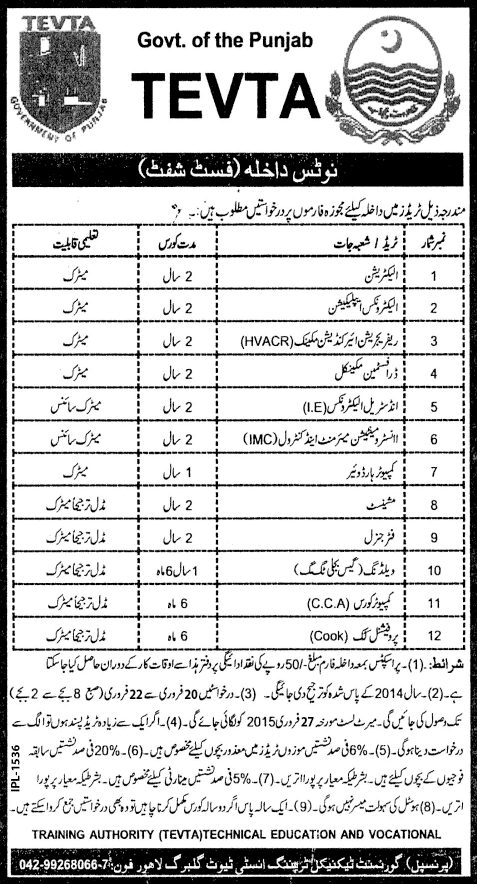 TEVTA
GOVERNMENT OF PUNJAB
Govt. of the Punjab
TEVTA
نوٹس داخلہ (فسٹ شفٹ)
مندرجہ ذیل ٹریڈز میں داخلہ کیلئے مجوزہ فارموں پر درخواستیں مطلوب ہیں:۔
نمبر شمار ٹریڈ / شعبہ جات مدت کورس تعلیمی قابلیت
1 الیکٹریشن 2 سال میٹرک
2 الیکٹرونکس ایپلیکیشن 2 سال میٹرک
3 ریفریجریشن ائیر کنڈیشن مکینک (HVACR) 2 سال میٹرک
4 ڈرافٹسمین مکینیکل 2 سال میٹرک
5 انڈسٹریل الیکٹرونکس (I.E) 2 سال میٹرک سائنس
6 انسٹرومینٹیشن میئرمنٹ اینڈ کنٹرول (IMC) 2 سال میٹرک سائنس
7 کمپیوٹر ہارڈ وئیر 1 سال میٹرک
8 مشینسٹ 2 سال مڈل ترجیحاً میٹرک
9 فٹر جنرل 2 سال مڈل ترجیحاً میٹرک
10 ویلڈنگ (گیس بجلی ٹگ مگ) 1 سال 6 ماہ مڈل ترجیحاً میٹرک
11 کمپیوٹر کورس (C.C.A) 6 ماہ مڈل ترجیحاً میٹرک
12 پروفیشنل کک (Cook) 6 ماہ مڈل ترجیحاً میٹرک
شرائط:۔ (1)۔ پراسپکٹس بمعہ داخلہ فارم مبلغ -/50 روپے کی نقد ادائیگی پر دفتر ہذا سے اوقات کار کے دوران حاصل کیا جا سکتا
ہے۔ (2)۔ سال 2014 کے پاس شدہ کو ترجیح دی جائیگی۔ (3)۔ درخواستیں 20 فروری سے 22 فروری (صبح 8 بجے سے 2 بجے)
تک وصول کی جائیں گی۔ میرٹ لسٹ مورخہ 27 فروری 2015 کو لگائی جائے گی۔ (4)۔ اگر ایک سے زیادہ ٹریڈ پسند ہوں تو الگ سے
درخواست دینا ہوگی۔ (5)۔ 6% فی صد نشستیں موزوں ٹریڈز میں معذور بچوں کیلئے مخصوص ہیں۔ (6)۔ 20% فی صد نشستیں سابقہ
فوجیوں کے بچوں کیلئے ہیں۔ بشرطیکہ معیار پر پورا اتریں۔ (7)۔ 5% فی صد نشستیں مینارٹی کیلئے مخصوص ہیں۔ بشرطیکہ معیار پر پورا
اتریں۔ (8) ہوسٹل کی سہولت میسر نہیں ہوگی۔ (9)۔ ایک سالہ پاس اگر دو سالہ کورس مکمل کرنا چاہیں تو وہ بھی درخواستیں جمع کروا سکتے ہیں۔
IPL-1536
TRAINING AUTHORITY (TEVTA)TECHNICAL EDUCATION AND VOCATIONAL
(پرنسپل) گورنمنٹ ٹیکنیکل ٹریننگ انسٹی ٹیوٹ گلبرگ لاہور فون: 7-042-99268066